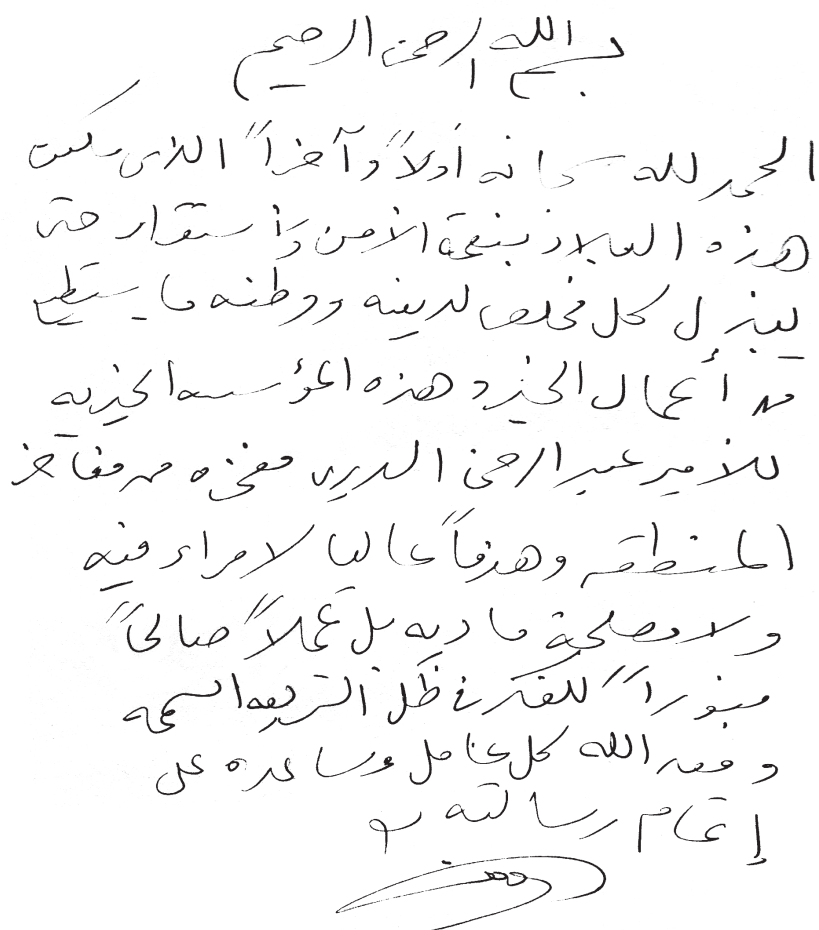 بسم الله الرحمن الرحيم
الحمد لله سبحانه أولاً وآخراً الذي
هذه البلاد بنعمة الأمن واستقرار حتى
يبذل كل مخلص لدينه ووطنه ما يستطيع
من أعمال الخير وهذه المؤسسه الخيريه
للأمير عبد الرحمن السديري مفخره من مفاخر
المنطقه وهدفاً عاليا لا مراء فيه
ولا مصلحة ماديه بل عملاً صالحاً
للفكر في ظل الشريعه السمحه
وفق الله كل عامل وساعده على
إتمام رسالته